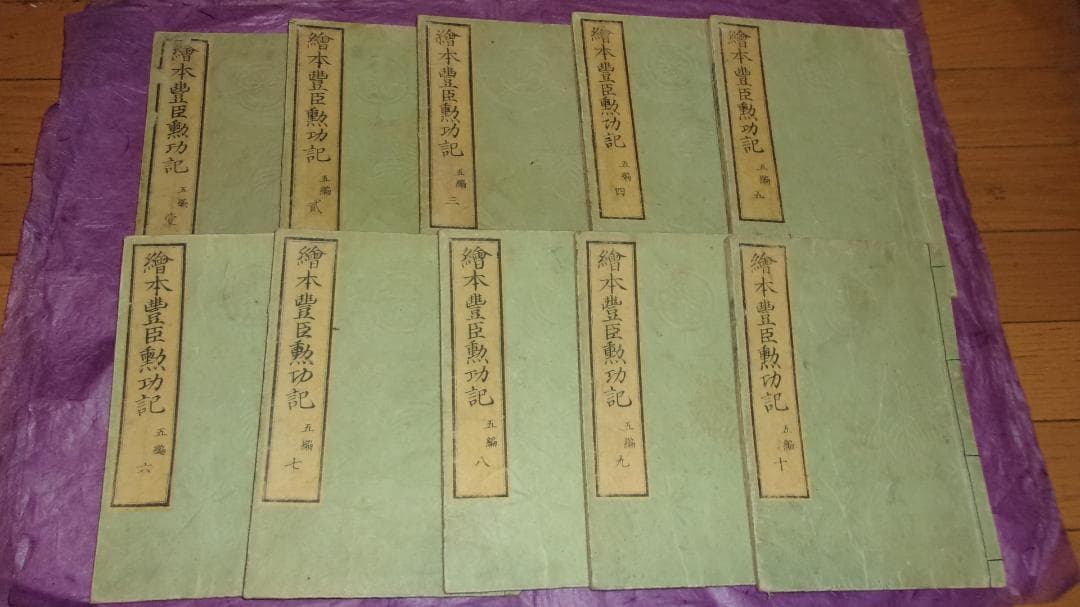 繪本豐臣勲功記 五編 壹
繪本豐臣勲功記 五編 貳
繪本豐臣勲功記 五編 三
繪本豐臣勲功記 五編 四
繪本豐臣勲功記 五編 五
繪本豐臣勲功記 五編 六
繪本豐臣勲功記 五編 七
繪本豐臣勲功記 五編 八
繪本豐臣勲功記 五編 九
繪本豐臣勲功記 五編 十